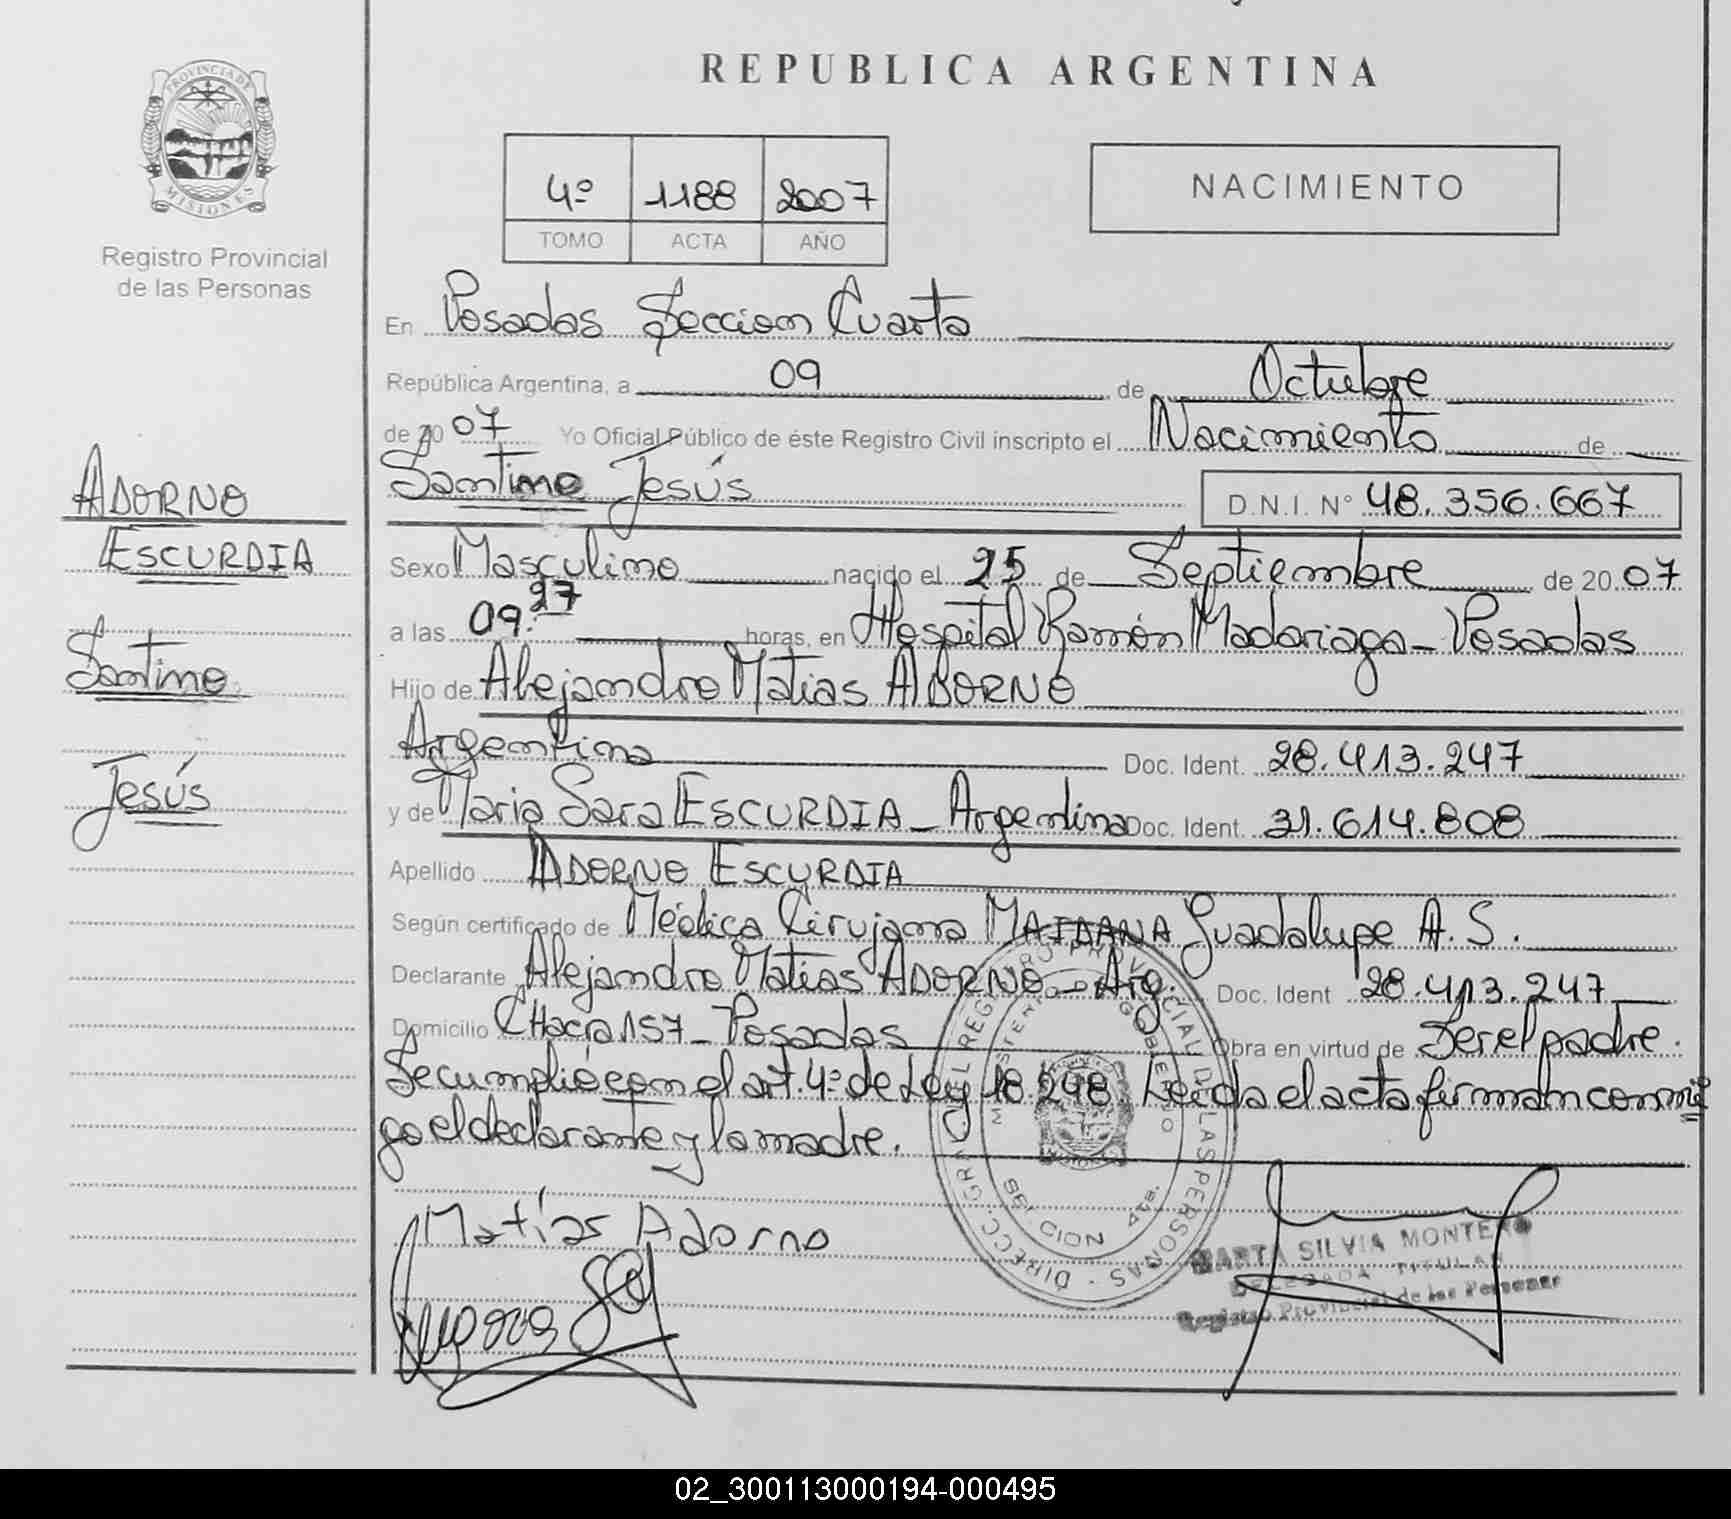 REPUBLICA ARGENTINA
PROVINCIA DE
MISIONES
Registro Provincial
de las Personas
4º 1188 2007
TOMO ACTA AÑO
NACIMIENTO
En Posadas Seccion Cuarta
República Argentina, a 09 de Octubre
de 20 07 Yo Oficial Público de éste Registro Civil inscripto el Nacimiento de
Santino Jesús D.N.I. Nº 48.356.667
ADORNO
ESCURDIA
Santino
Jesús
Sexo Masculino nacido el 25 de Septiembre de 20 07
a las 09:27 horas, en Hospital Ramón Madariaga - Posadas
Hijo de Alejandro Matias ADORNO
Argentina Doc. Ident. 28.413.247
y de Maria Sara ESCURDIA - Argentina Doc. Ident. 31.614.808
Apellido ADORNO ESCURDIA
Según certificado de Médica Cirujana MAIDANA Guadalupe A.S.
Declarante Alejandro Matias ADORNO - Arg. Doc. Ident 28.413.247
Domicilio CHacra 157 - Posadas Obra en virtud de Ser el padre.
Se cumplió con el art. 4º de Ley 18.248. Leída el acta firman conmi
go el declarante y la madre.
Matías Adorno
DIRECC. GRAL. DEL REGISTRO PROVINCIAL DE LAS PERSONAS
MARTA SILVIA MONTERO
DELEGADA TITULAR
Registro Provincial de las Personas
02_300113000194-000495